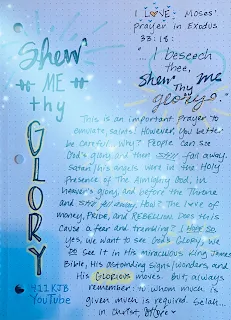 I LOVE Moses'
prayer in Exodus
33:18:
"I beseech
thee,
shew me
thy
glory."
Shew
ME
thy
GLORY
This is an important prayer to
emulate, Saints! However, you better
be careful. Why? People can see
God's glory and then still fall away.
Satan/his angels were in the Holy
Presence of The Almighty God, in
heaven's glory, and before the Throne
and still fell away. How? The love of
money, PRIDE, and REBELLION. Does this
cause a fear and trembling? I hope so.
Yes, we want to see God's Glory, we
do see it in His miraculous King James
Bible, His astounding signs/wonders, and
His GLORIOUS moves. But, always
remember: to whom much is
given much is required. Selah...
in Christ,
411 KJB
YouTube